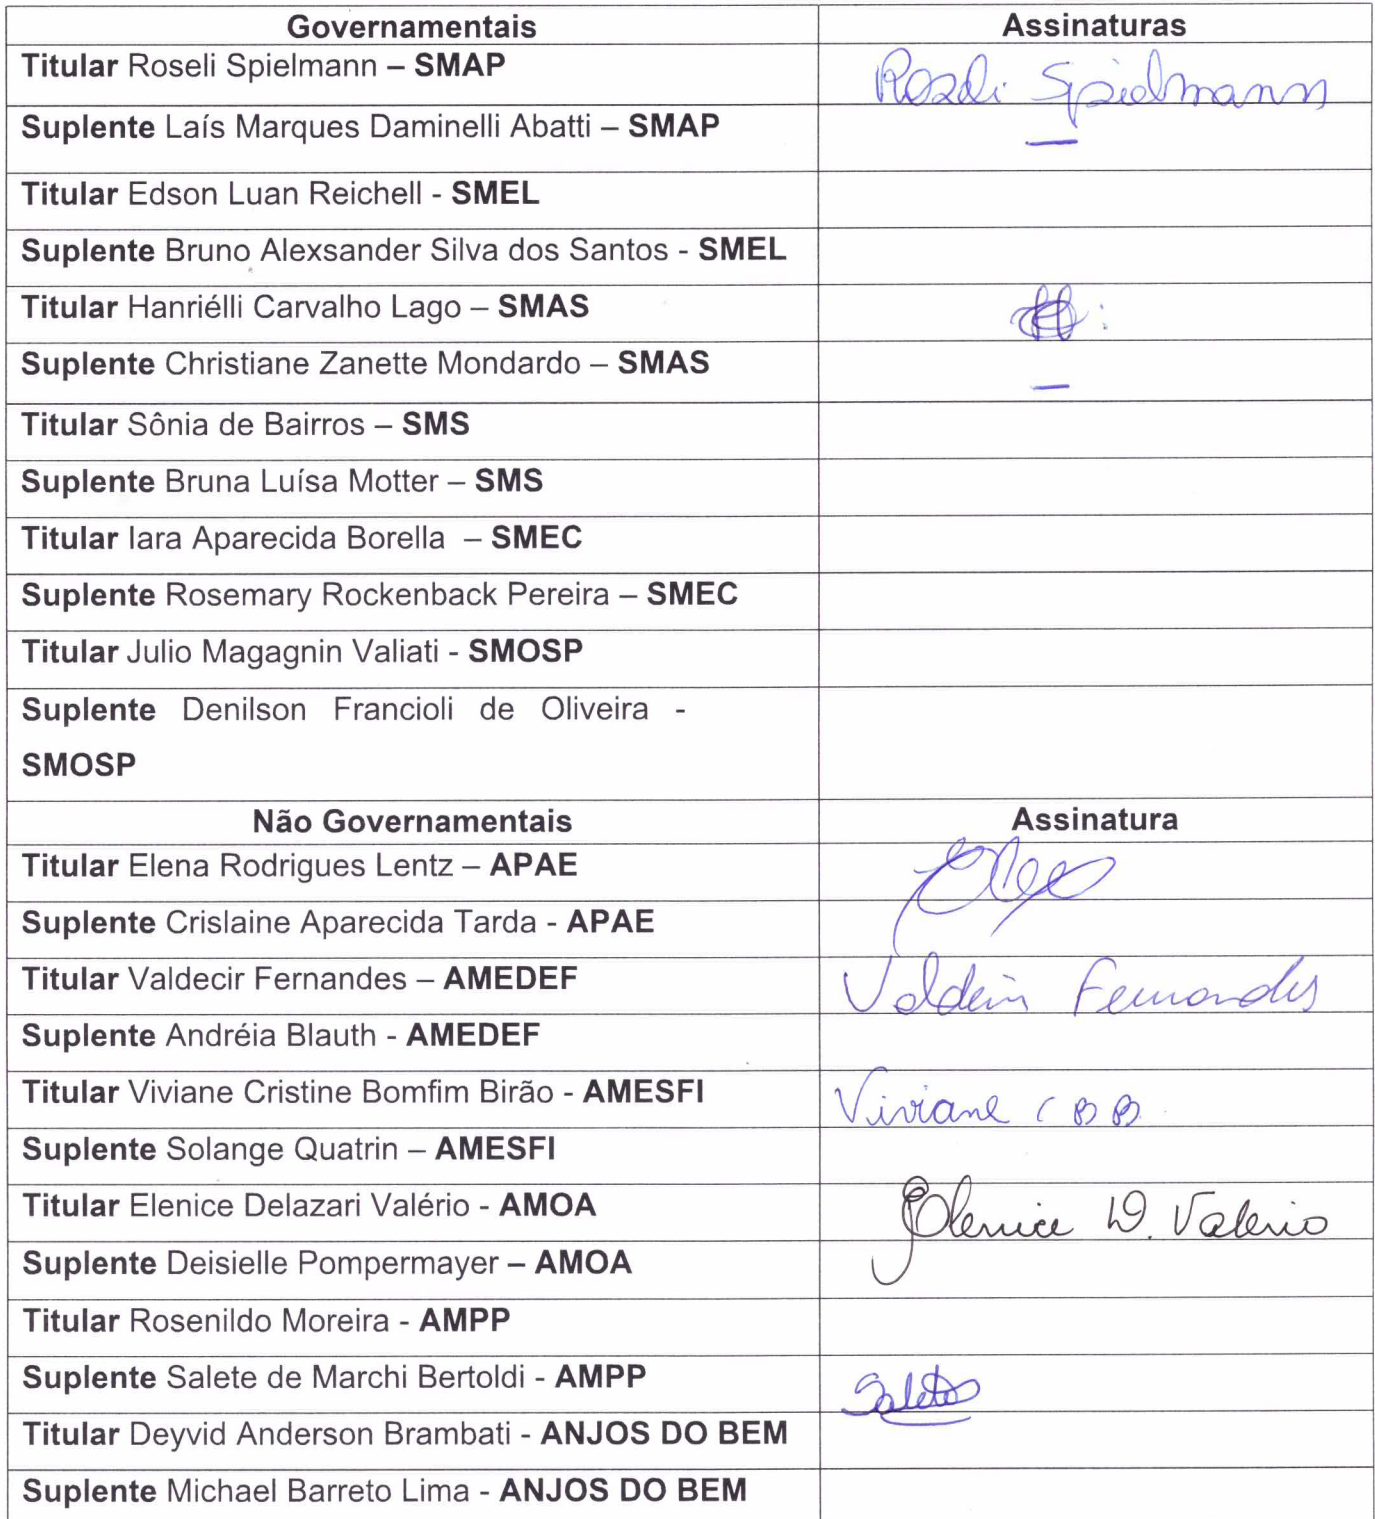 Governamentais Assinaturas
Titular Roseli Spielmann – SMAP Roseli Spielmann
Suplente Laís Marques Daminelli Abatti – SMAP —
Titular Edson Luan Reichell - SMEL
Suplente Bruno Alexsander Silva dos Santos - SMEL
Titular Hanriélli Carvalho Lago – SMAS
Suplente Christiane Zanette Mondardo – SMAS —
Titular Sônia de Bairros – SMS
Suplente Bruna Luísa Motter – SMS
Titular Iara Aparecida Borella – SMEC
Suplente Rosemary Rockenback Pereira – SMEC
Titular Julio Magagnin Valiati - SMOSP
Suplente Denilson Francioli de Oliveira -
SMOSP
Não Governamentais Assinatura
Titular Elena Rodrigues Lentz – APAE
Suplente Crislaine Aparecida Tarda - APAE
Titular Valdecir Fernandes – AMEDEF Valdecir Fernandes
Suplente Andréia Blauth - AMEDEF
Titular Viviane Cristine Bomfim Birão - AMESFI Viviane C B B.
Suplente Solange Quatrin – AMESFI
Titular Elenice Delazari Valério - AMOA Elenice D. Valerio
Suplente Deisielle Pompermayer – AMOA
Titular Rosenildo Moreira - AMPP
Suplente Salete de Marchi Bertoldi - AMPP Salete
Titular Deyvid Anderson Brambati - ANJOS DO BEM
Suplente Michael Barreto Lima - ANJOS DO BEM